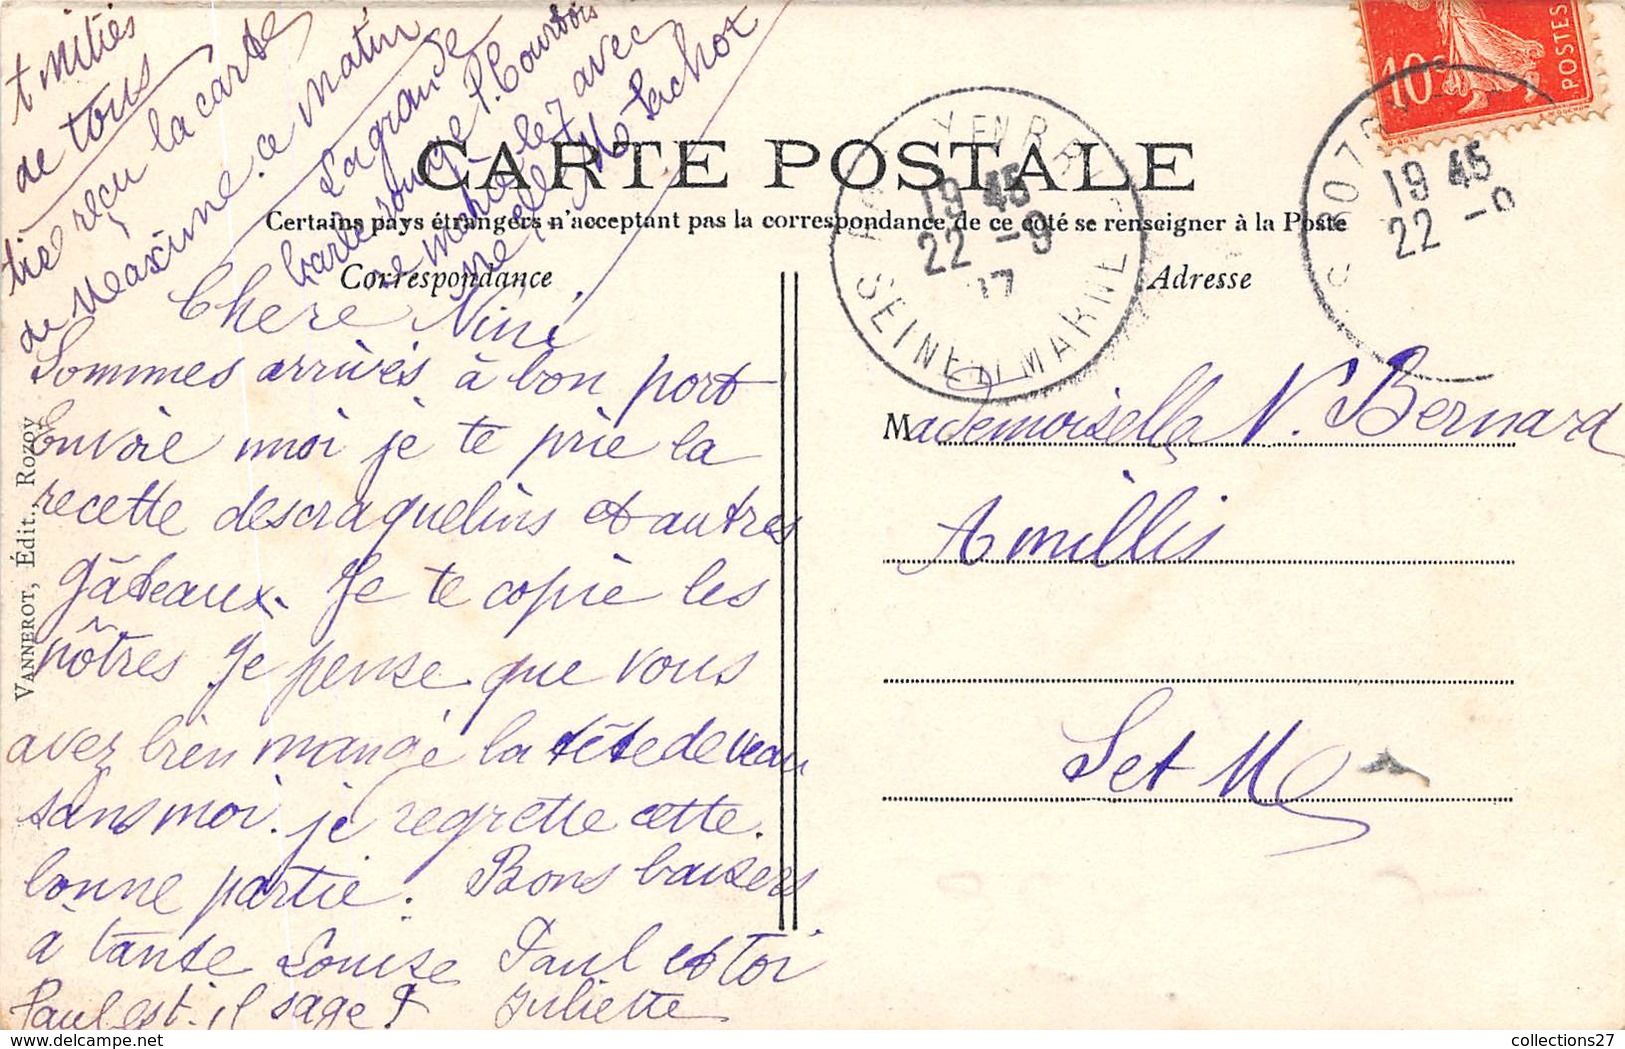 CARTE POSTALE
Certains pays étrangers n'acceptant pas la correspondance de ce côté se renseigner à la Poste
Correspondance
Adresse
Chere Nini
Sommes arrivés à bon port
Envoie moi je te prie la
recette descraquelins et autres
gâteaux. Je te copie les
nôtres Je pense que vous
avez bien mangé la tête de veau
sans moi. je regrette cette
bonne partie. Bons baisers
à tante Louise Paul et toi
Paul est-il sage? Juliette
Amitiés
de tous
reçu la carte
de Maxime ce matin
La grande
avec
Mademoiselle N. Bernard
Amillis
S et M
VANNEROT, Édit., Rozoy
10c
POSTES
19 45
22 -9
17
SEINE ET MARNE
19 45
22 -9
collections27